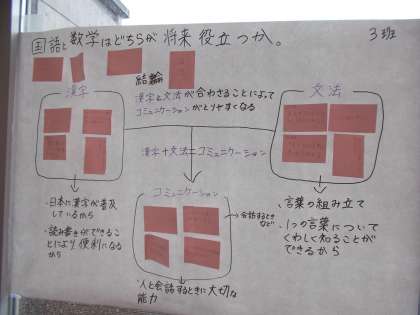 国語と数学はどちらが将来役立つか。
3班
結論
漢字と文法が合わさることによって
コミュニケーションがとりやすくなる
漢字
文法
漢字+文法=コミュニケーション
コミュニケーション
・日本に漢字が普及
しているから
・読み書きができるこ
とにより便利になる
から
→会話するとき
など
・言葉の組み立て
・1つの言葉について
くわしく知ることが
できるから
・人と会話するときに大切な
能力